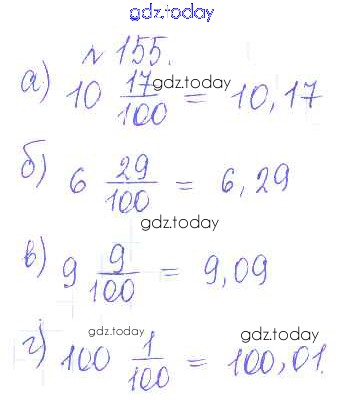 gdz.today
№ 155.
а) 10 17/100 = 10,17
gdz.today
б) 6 29/100 = 6,29
gdz.today
в) 9 9/100 = 9,09
gdz.today gdz.today
г) 100 1/100 = 100,01.